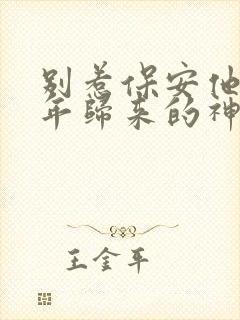 别惹保安他
年归来的神
王金平